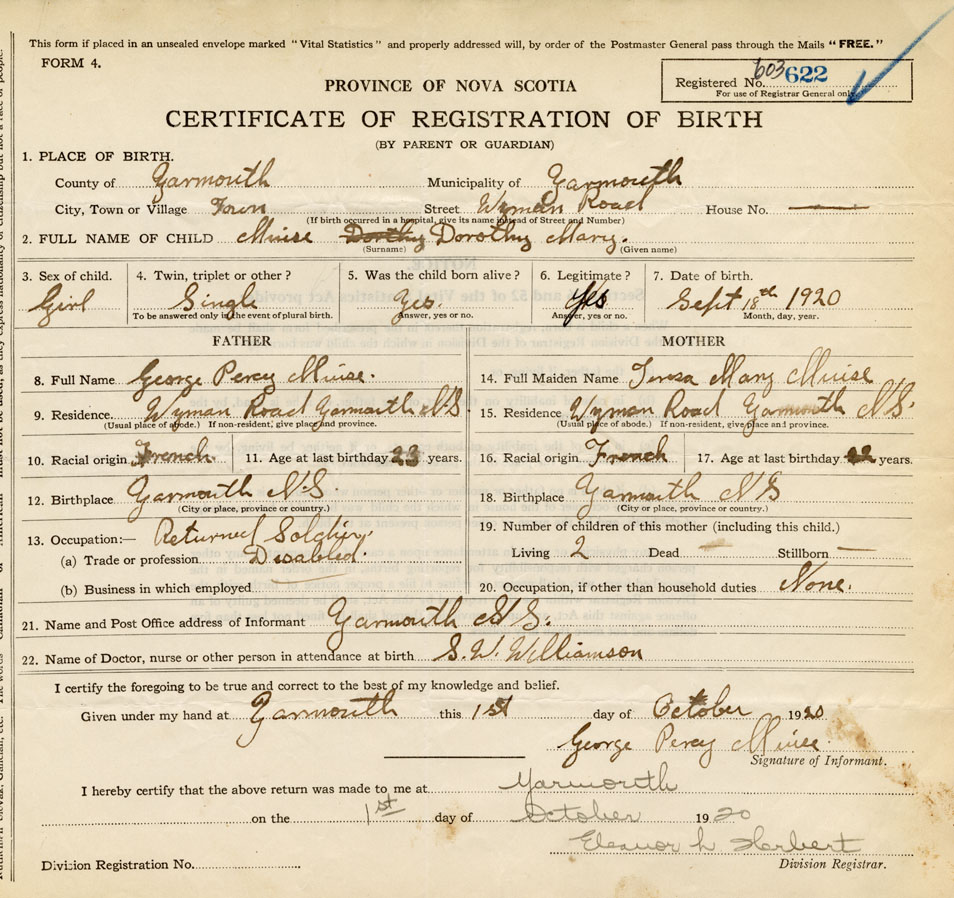 This form if placed in an unsealed envelope marked "Vital Statistics" and properly addressed will, by order of the Postmaster General pass through the Mails "FREE."
FORM 4.
PROVINCE OF NOVA SCOTIA
Registered No. 603 622
For use of Registrar General only
CERTIFICATE OF REGISTRATION OF BIRTH
(BY PARENT OR GUARDIAN)
1. PLACE OF BIRTH.
County of Yarmouth Municipality of Yarmouth
City, Town or Village Town Street Wyman Road House No.
(If birth occurred in a hospital, give its name instead of Street and Number)
2. FULL NAME OF CHILD Muise Dorothy Dorothy Mary.
(Surname) (Given name)
3. Sex of child. 4. Twin, triplet or other? 5. Was the child born alive? 6. Legitimate? 7. Date of birth.
Girl Single Yes. Yes Sept 18th 1920
To be answered only in the event of plural birth. Answer, yes or no. Answer, yes or no. Month, day, year.
FATHER MOTHER
8. Full Name George Percy Muise. 14. Full Maiden Name Teresa Mary Muise
9. Residence. Wyman Road Yarmouth N S. 15. Residence Wyman Road Yarmouth N S.
(Usual place of abode.) If non-resident, give place and province. (Usual place of abode.) If non-resident, give place and province.
10. Racial origin French. 11. Age at last birthday 23 years. 16. Racial origin French 17. Age at last birthday 22 years.
12. Birthplace Yarmouth N.S. 18. Birthplace Yarmouth N S
(City or place, province or country.) (City or place, province or country.)
13. Occupation:— Returned Soldier, 19. Number of children of this mother (including this child.)
(a) Trade or profession Disabled. Living 2 Dead — Stillborn —
(b) Business in which employed 20. Occupation, if other than household duties None.
21. Name and Post Office address of Informant Yarmouth N S.
22. Name of Doctor, nurse or other person in attendance at birth S. W. Williamson
I certify the foregoing to be true and correct to the best of my knowledge and belief.
Given under my hand at Yarmouth this 1st day of October 1920
George Percy Muise.
Signature of Informant.
I hereby certify that the above return was made to me at Yarmouth
on the 1st day of October 1920
Eleanor L Herbert
Division Registration No. Division Registrar.